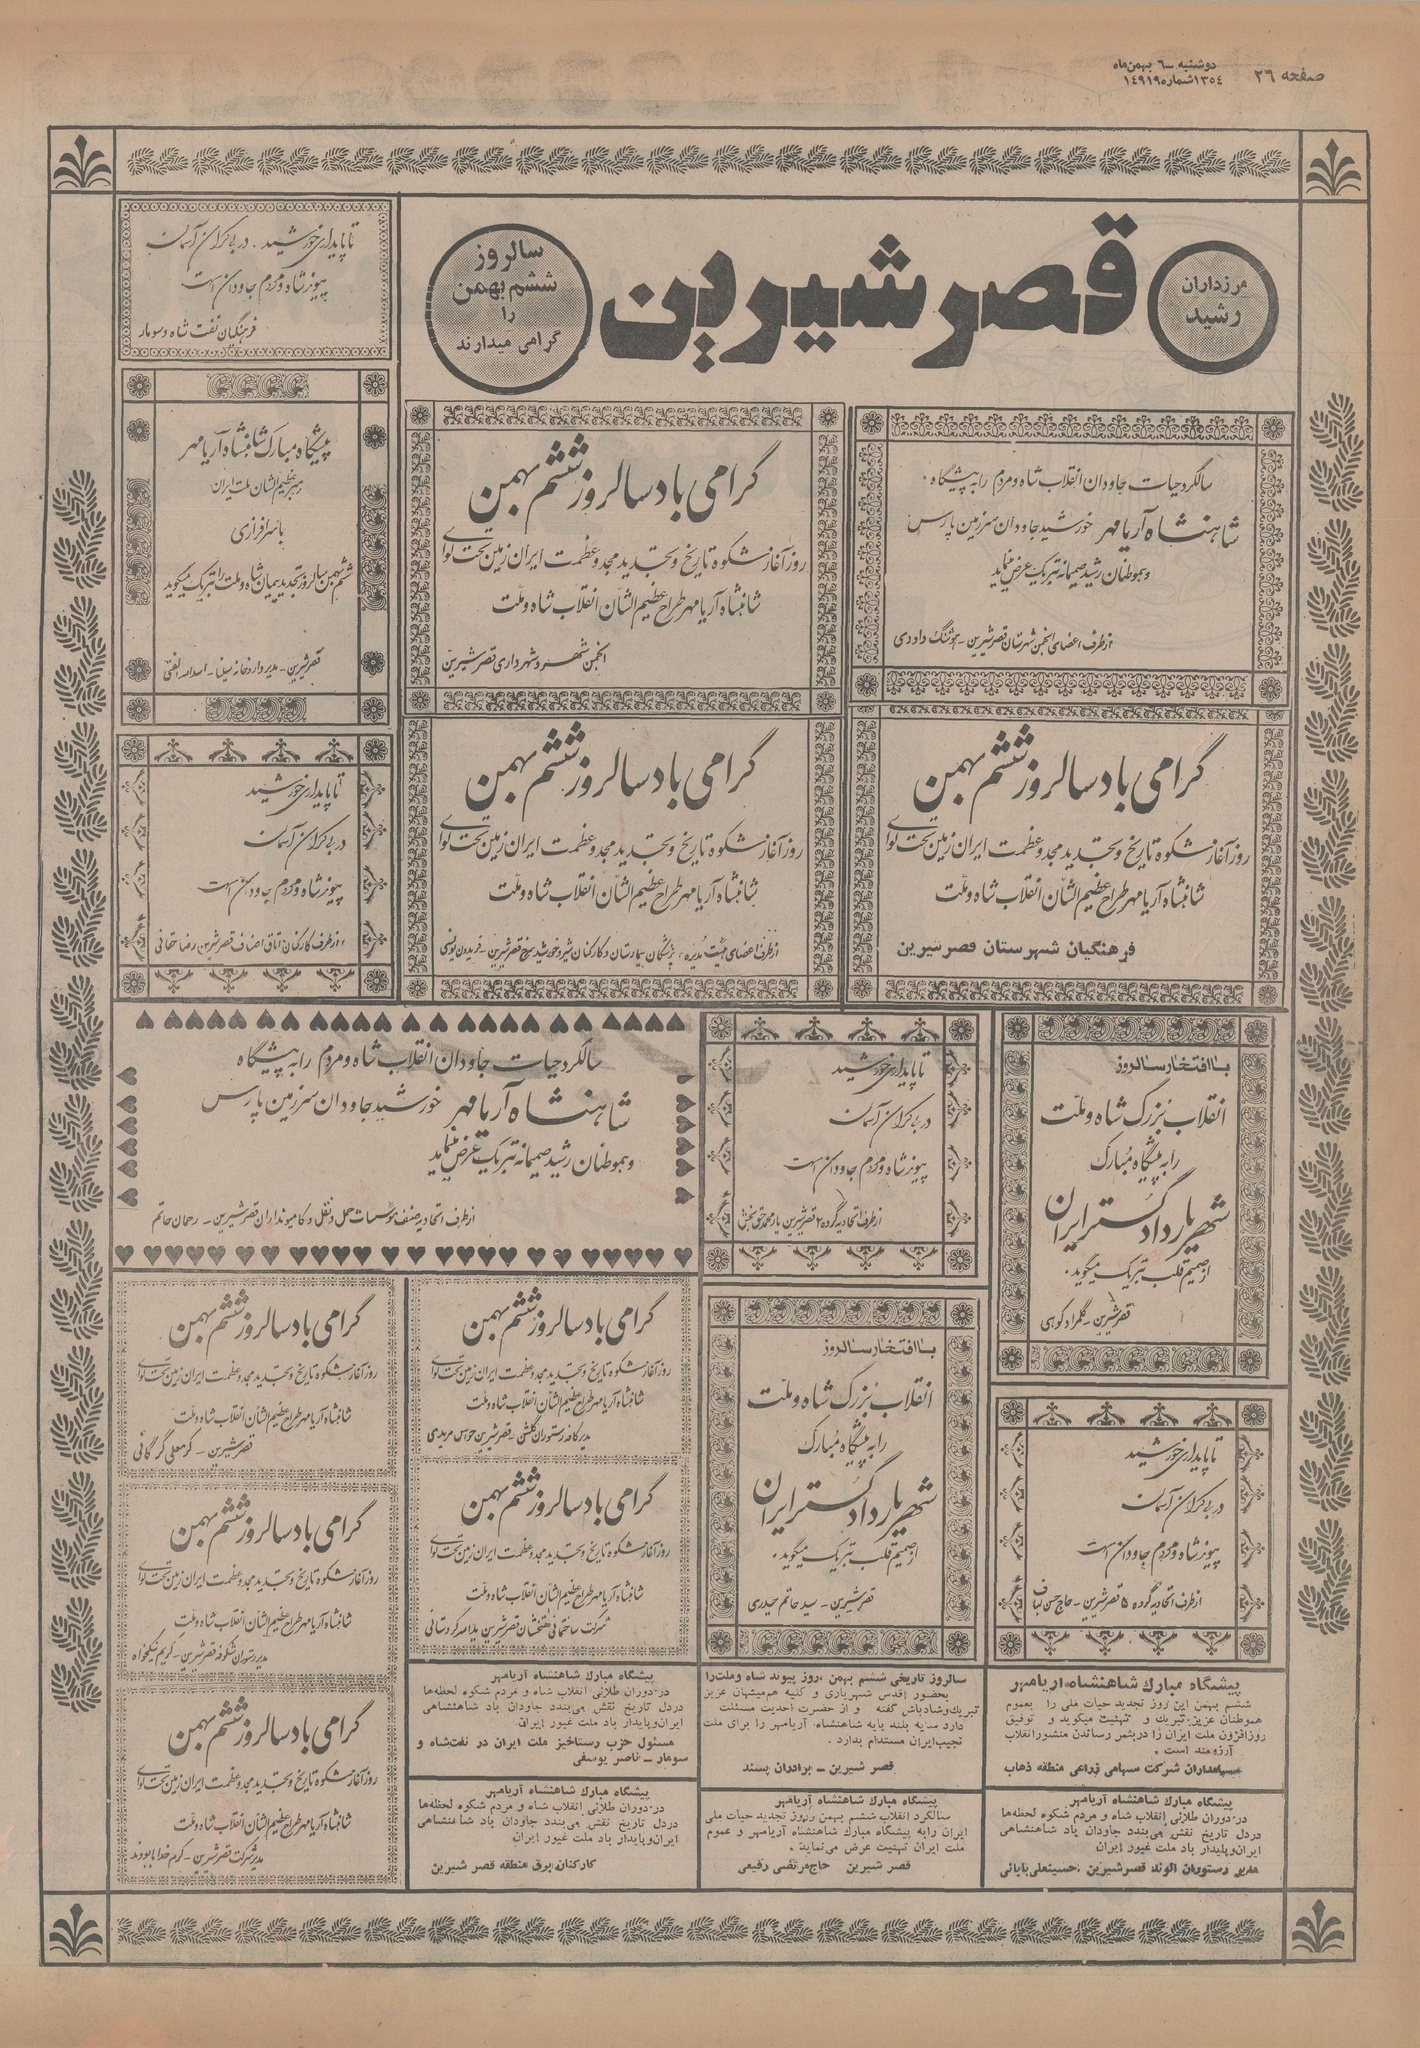 صفحه ۲۶
دوشنبه - ۶ بهمن ماه
۱۳۵۴ شماره ۱۴۹۱۹
مرزداران
رشید
قصر شیرین
سالروز
ششم بهمن
را
گرامی میدارند
سالگرد حیات جاودان انقلاب شاه و مردم را به پیشگاه .
شاهنشاه آریامهر خورشید جاودان سرزمین پارس
و هموطنان رشید صمیمانه تبریک عرض مینماید
از طرف اعضای انجمن شهرستان قصرشیرین - هوشنگ داودی
گرامی باد سالروز ششم بهمن
روز آغاز شکوه تاریخ و تجدید مجد و عظمت ایران زمین تحت لوای
شاهنشاه آریامهر طراح عظیم الشأن انقلاب شاه و ملت
انجمن شهر و شهرداری قصرشیرین
تا پایداری خورشید . در بی کران آسمان
پیوند شاه و مردم جاودان است
فرهنگیان نفت شاه و سومار
پیشگاه مبارک شاهنشاه آریامهر
رهبر عظیم الشان ملت ایران
با سرافرازی
ششم بهمن سالروز تجدید پیمان شاه و ملت را تبریک میگوید
قصرشیرین - مدیر داروخانه سینا - اسدالله الفتی
گرامی باد سالروز ششم بهمن
روز آغاز شکوه تاریخ و تجدید مجد و عظمت ایران زمین تحت لوای
شاهنشاه آریامهر طراح عظیم الشأن انقلاب شاه و ملت
فرهنگیان شهرستان قصرشیرین
گرامی باد سالروز ششم بهمن
روز آغاز شکوه تاریخ و تجدید مجد و عظمت ایران زمین تحت لوای
شاهنشاه آریامهر طراح عظیم الشأن انقلاب شاه و ملت
از طرف اعضای هیئت مدیره ، پزشکان بیمارستان و کارکنان شیر و خورشید سرخ قصرشیرین - فریدون یونسی
تا پایداری خورشید
در بی کران آسمان
پیوند شاه و مردم جاودان است
از طرف کارکنان اتاق اصناف قصرشیرین رضا
با افتخار سالروز
انقلاب بزرگ شاه و ملت
را به پیشگاه مبارک
شهریار دادگستر ایران
از صمیم قلب تبریک میگوید .
قصرشیرین - گلمراد کوهی
تا پایداری خورشید
در بی کران آسمان
پیوند شاه و مردم جاودان است
از طرف اتحادیه گروه ۲ قصرشیرین یارمحمد حق بخش
سالگرد حیات جاودان انقلاب شاه و مردم را به پیشگاه
شاهنشاه آریامهر خورشید جاودان سرزمین پارس
و هموطنان رشید صمیمانه تبریک عرض مینماید
از طرف اتحادیه صنف مؤسسات حمل و نقل و کامیونداران قصرشیرین - رحمان حاتم
تا پایداری خورشید
در بی کران آسمان
پیوند شاه و مردم جاودان است
از طرف اتحادیه گروه ۵ قصرشیرین - حاج حسن لباف
با افتخار سالروز
انقلاب بزرگ شاه و ملت
را به پیشگاه مبارک
شهریار دادگستر ایران
از صمیم قلب تبریک میگوید .
قصرشیرین - سید حاتم حیدری
گرامی باد سالروز ششم بهمن
روز آغاز شکوه تاریخ و تجدید مجد و عظمت ایران زمین تحت لوای
شاهنشاه آریامهر طراح عظیم الشأن انقلاب شاه و ملت
مدیر کافه رستوران گلشن - قصرشیرین مریدی
گرامی باد سالروز ششم بهمن
روز آغاز شکوه تاریخ و تجدید مجد و عظمت ایران زمین تحت لوای
شاهنشاه آریامهر طراح عظیم الشأن انقلاب شاه و ملت
قصرشیرین - کرمعلی گرگانی
گرامی باد سالروز ششم بهمن
روز آغاز شکوه تاریخ و تجدید مجد و عظمت ایران زمین تحت لوای
شاهنشاه آریامهر طراح عظیم الشأن انقلاب شاه و ملت
شرکت ساختمانی قصرشیرین کردستانی
گرامی باد سالروز ششم بهمن
روز آغاز شکوه تاریخ و تجدید مجد و عظمت ایران زمین تحت لوای
شاهنشاه آریامهر طراح عظیم الشأن انقلاب شاه و ملت
مدیر رستوران شکوفه قصرشیرین - کریم نیکخواه
گرامی باد سالروز ششم بهمن
روز آغاز شکوه تاریخ و تجدید مجد و عظمت ایران زمین تحت لوای
شاهنشاه آریامهر طراح عظیم الشأن انقلاب شاه و ملت
مدیر شرکت قصرشیرین - کرم خدا
پیشگاه مبارک شاهنشاه آریامهر
ششم بهمن این روز تجدید حیات ملی را بعموم
هموطنان عزیز تبریک و تهنیت میگوید و توفیق
روزافزون ملت ایران را در بثمر رساندن منشور انقلاب
آرزومند است .
سهامداران شرکت سهامی زراعی منطقه ذهاب
سالروز تاریخی ششم بهمن ، روز پیوند شاه و ملت را
بحضور اقدس شهریاری و کلیه هم‌میهنان عزیز
تبریک و شادباش گفته و از حضرت احدیت مسئلت
دارد سایه بلند پایه شاهنشاه آریامهر را برای ملت
نجیب ایران مستدام بدارد .
قصر شیرین - برادران پسند
پیشگاه مبارک شاهنشاه آریامهر
در دوران طلائی انقلاب شاه و مردم شکوه لحظه‌ها
در دل تاریخ نقش می‌بندد جاودان باد شاهنشاهی
ایران و پایدار باد ملت غیور ایران
مسئول حزب رستاخیز ملت ایران در نفت‌شاه و
سومار - ناصر یوسفی
پیشگاه مبارک شاهنشاه آریامهر
در دوران طلائی انقلاب شاه و مردم شکوه لحظه‌ها
در دل تاریخ نقش می‌بندد جاودان باد شاهنشاهی
ایران و پایدار باد ملت غیور ایران
مدیر رستوران الوند قصرشیرین ، حسینعلی بابائی
پیشگاه مبارک شاهنشاه آریامهر
سالگرد انقلاب ششم بهمن روز تجدید حیات ملی
ایران را به پیشگاه مبارک شاهنشاه آریامهر و عموم
ملت ایران تهنیت عرض می‌نماید .
قصر شیرین حاج مرتضی رفیعی
پیشگاه مبارک شاهنشاه آریامهر
در دوران طلائی انقلاب شاه و مردم شکوه لحظه‌ها
در دل تاریخ نقش می‌بندد جاودان باد شاهنشاهی
ایران و پایدار باد ملت غیور ایران
کارکنان برق منطقه قصر شیرین